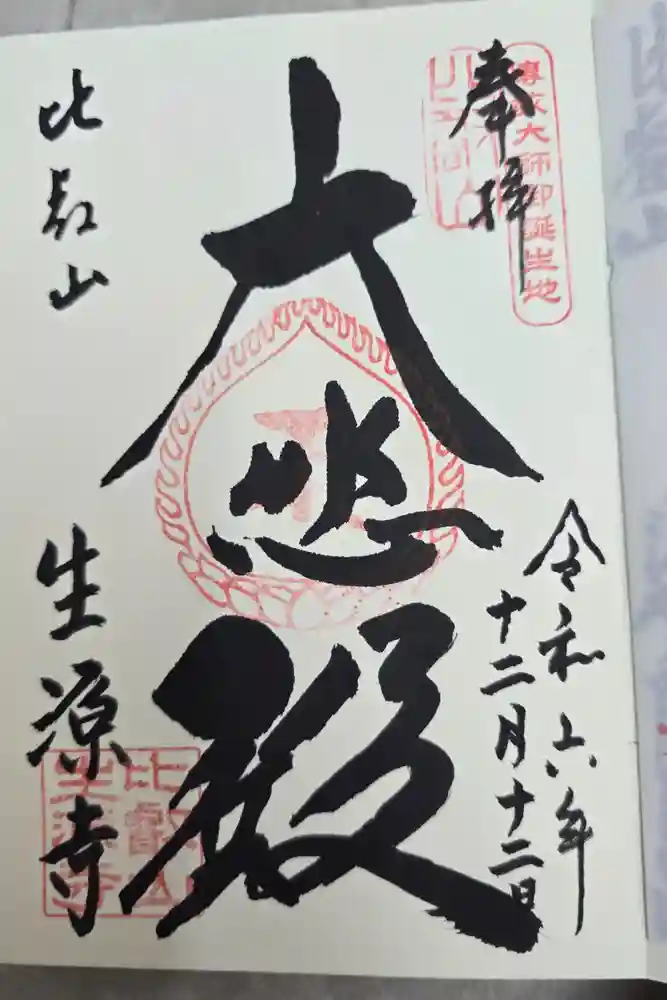 奉拝
傳教大師御誕生地
令和六年
十二月十二日
大悲殿
比叡山
生源寺
比叡山
生源寺